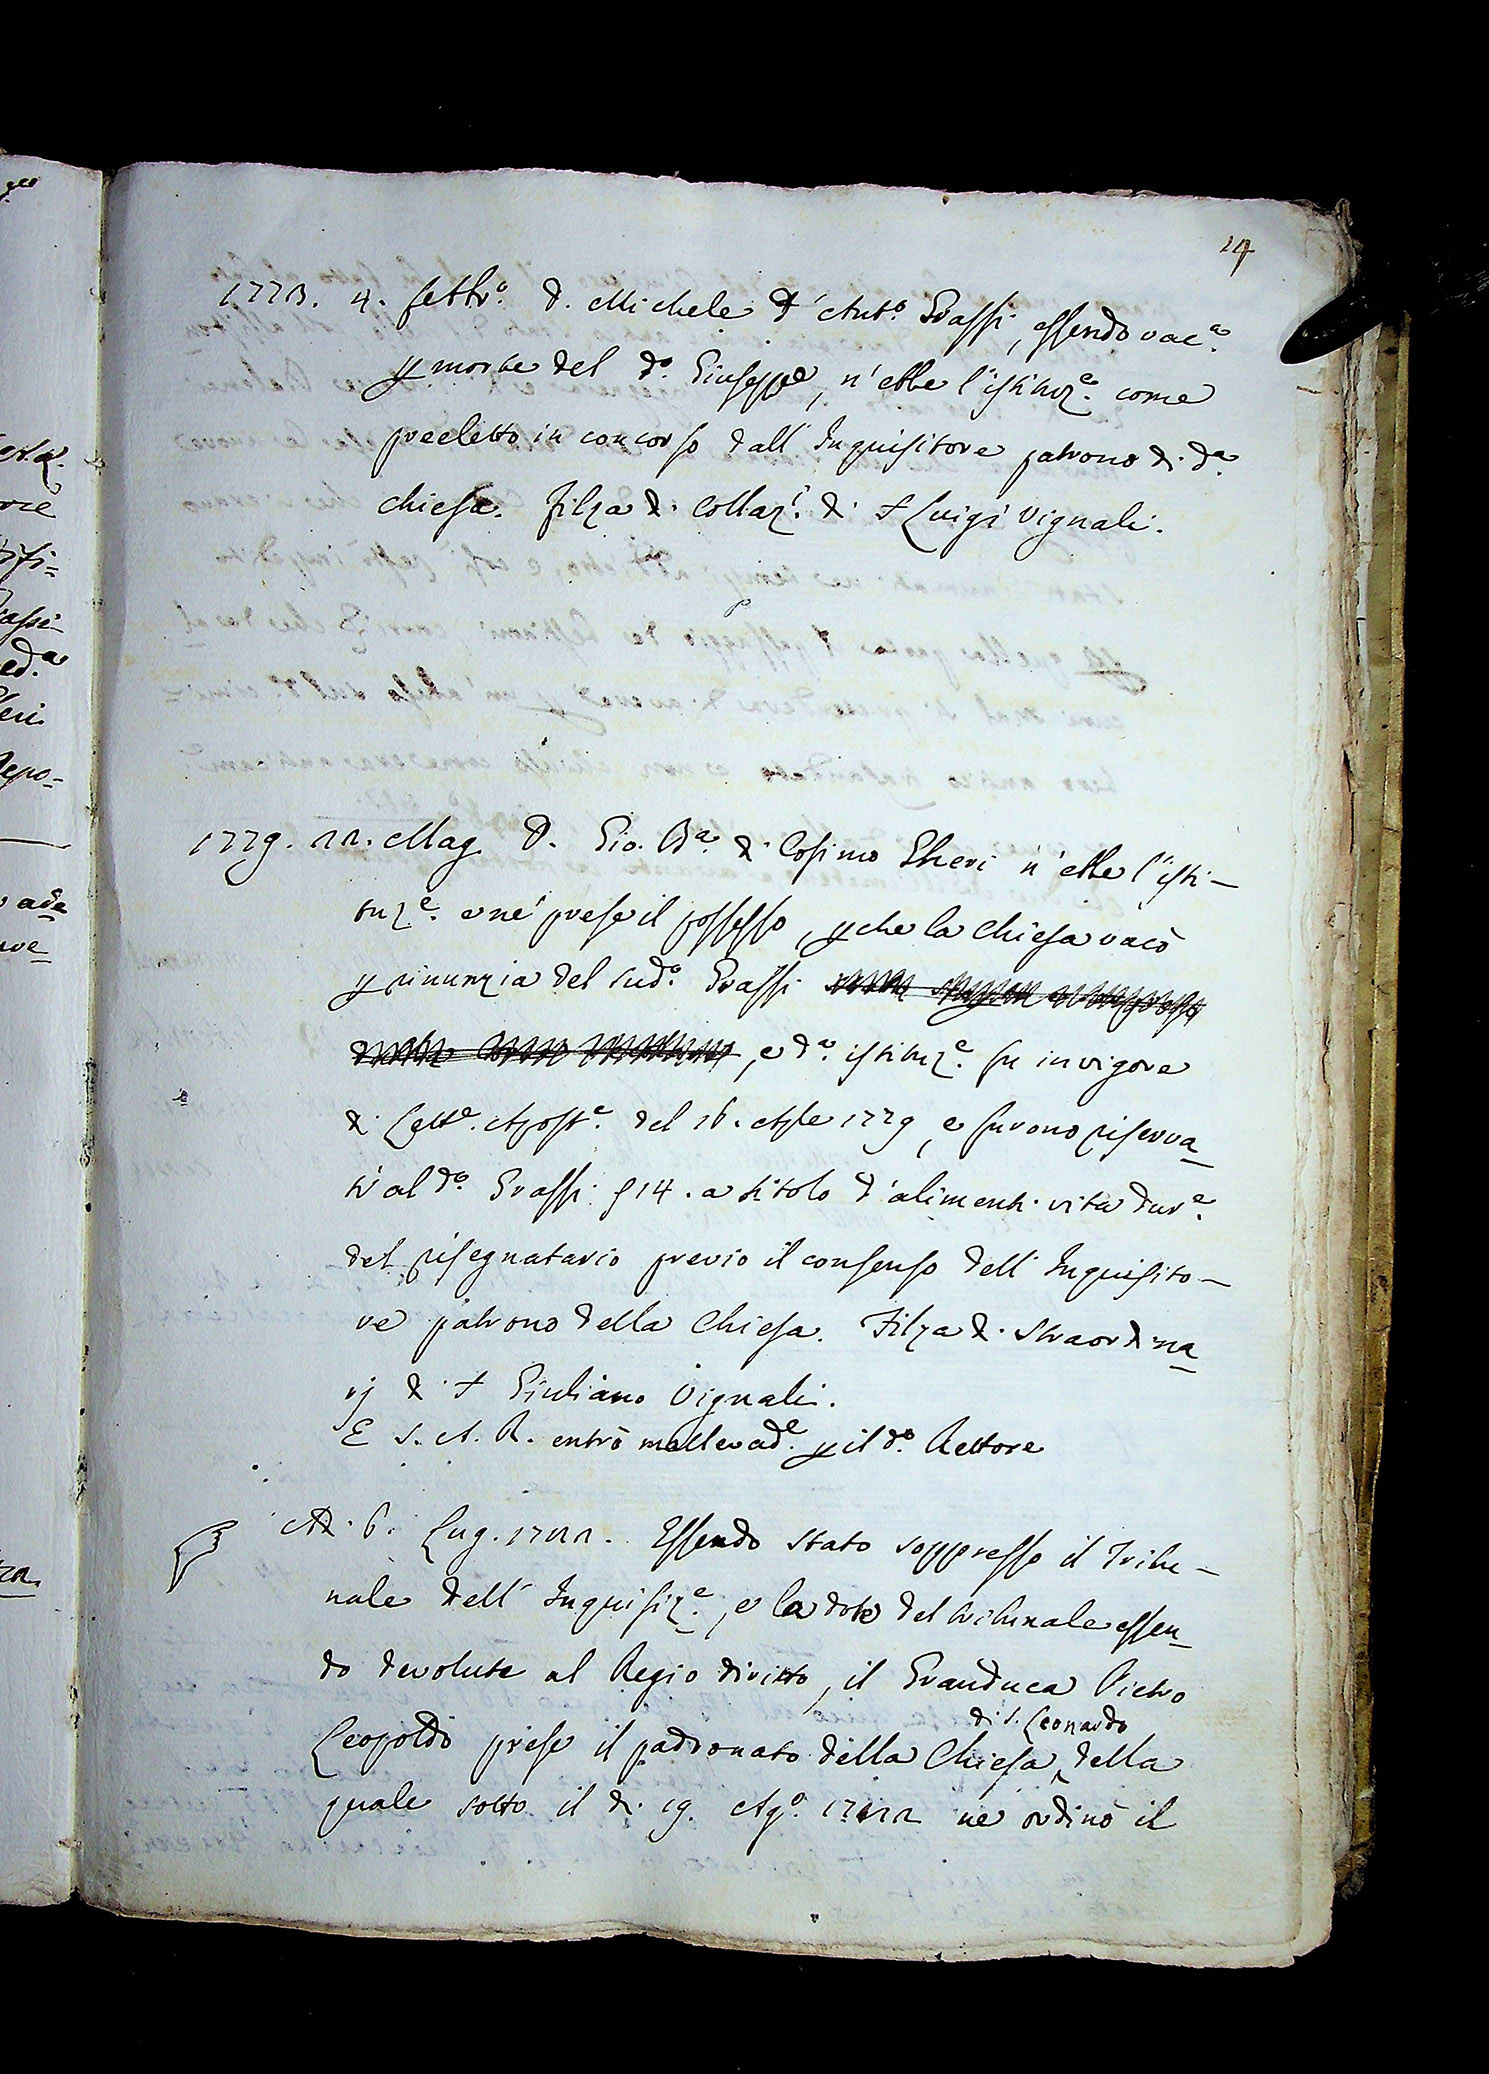 14
1773. 4. Settre. D. Michele d'Anto. Grassi, essendo vaca.
p morte del do. Giuseppe, n'ebbe l'istituze. come
preeletto in concorso dall'Inquisitore patrono di da.
chiesa. Filza di Collazi. di + Luigi Vignali.
1779. 22. Mag. D. Gio. Ba. di Cosimo Gheri n'ebbe l'isti-
tuze. e ne prese il possesso, p che la Chiesa vacò
p rinunzia del sudo. Grassi
, e da. istituze. fu in vigore
di Lette. Aposte. del 16. Aple 1779, e furono riserva
ti al do. Grassi 14. a titolo d'alimenti vita dure.
del risegnatario previo il consenso dell'Inquisito-
re patrono della Chiesa. Filza di Straordina
rj di + Giuliano Vignali.
E S. A. R. entrò mallevade. p il do. Rettore
Adi 6. Lug. 1782. Essendo stato soppresso il Tribu-
nale dell'Inquisize., e la dote del tribunale essen
do devolute al Regio diritto, il Granduca Pietro
di S. Leonardo
Leopoldo prese il padronato della Chiesa della
quale sotto il di 19. Ago. 1782 ne ordinò il